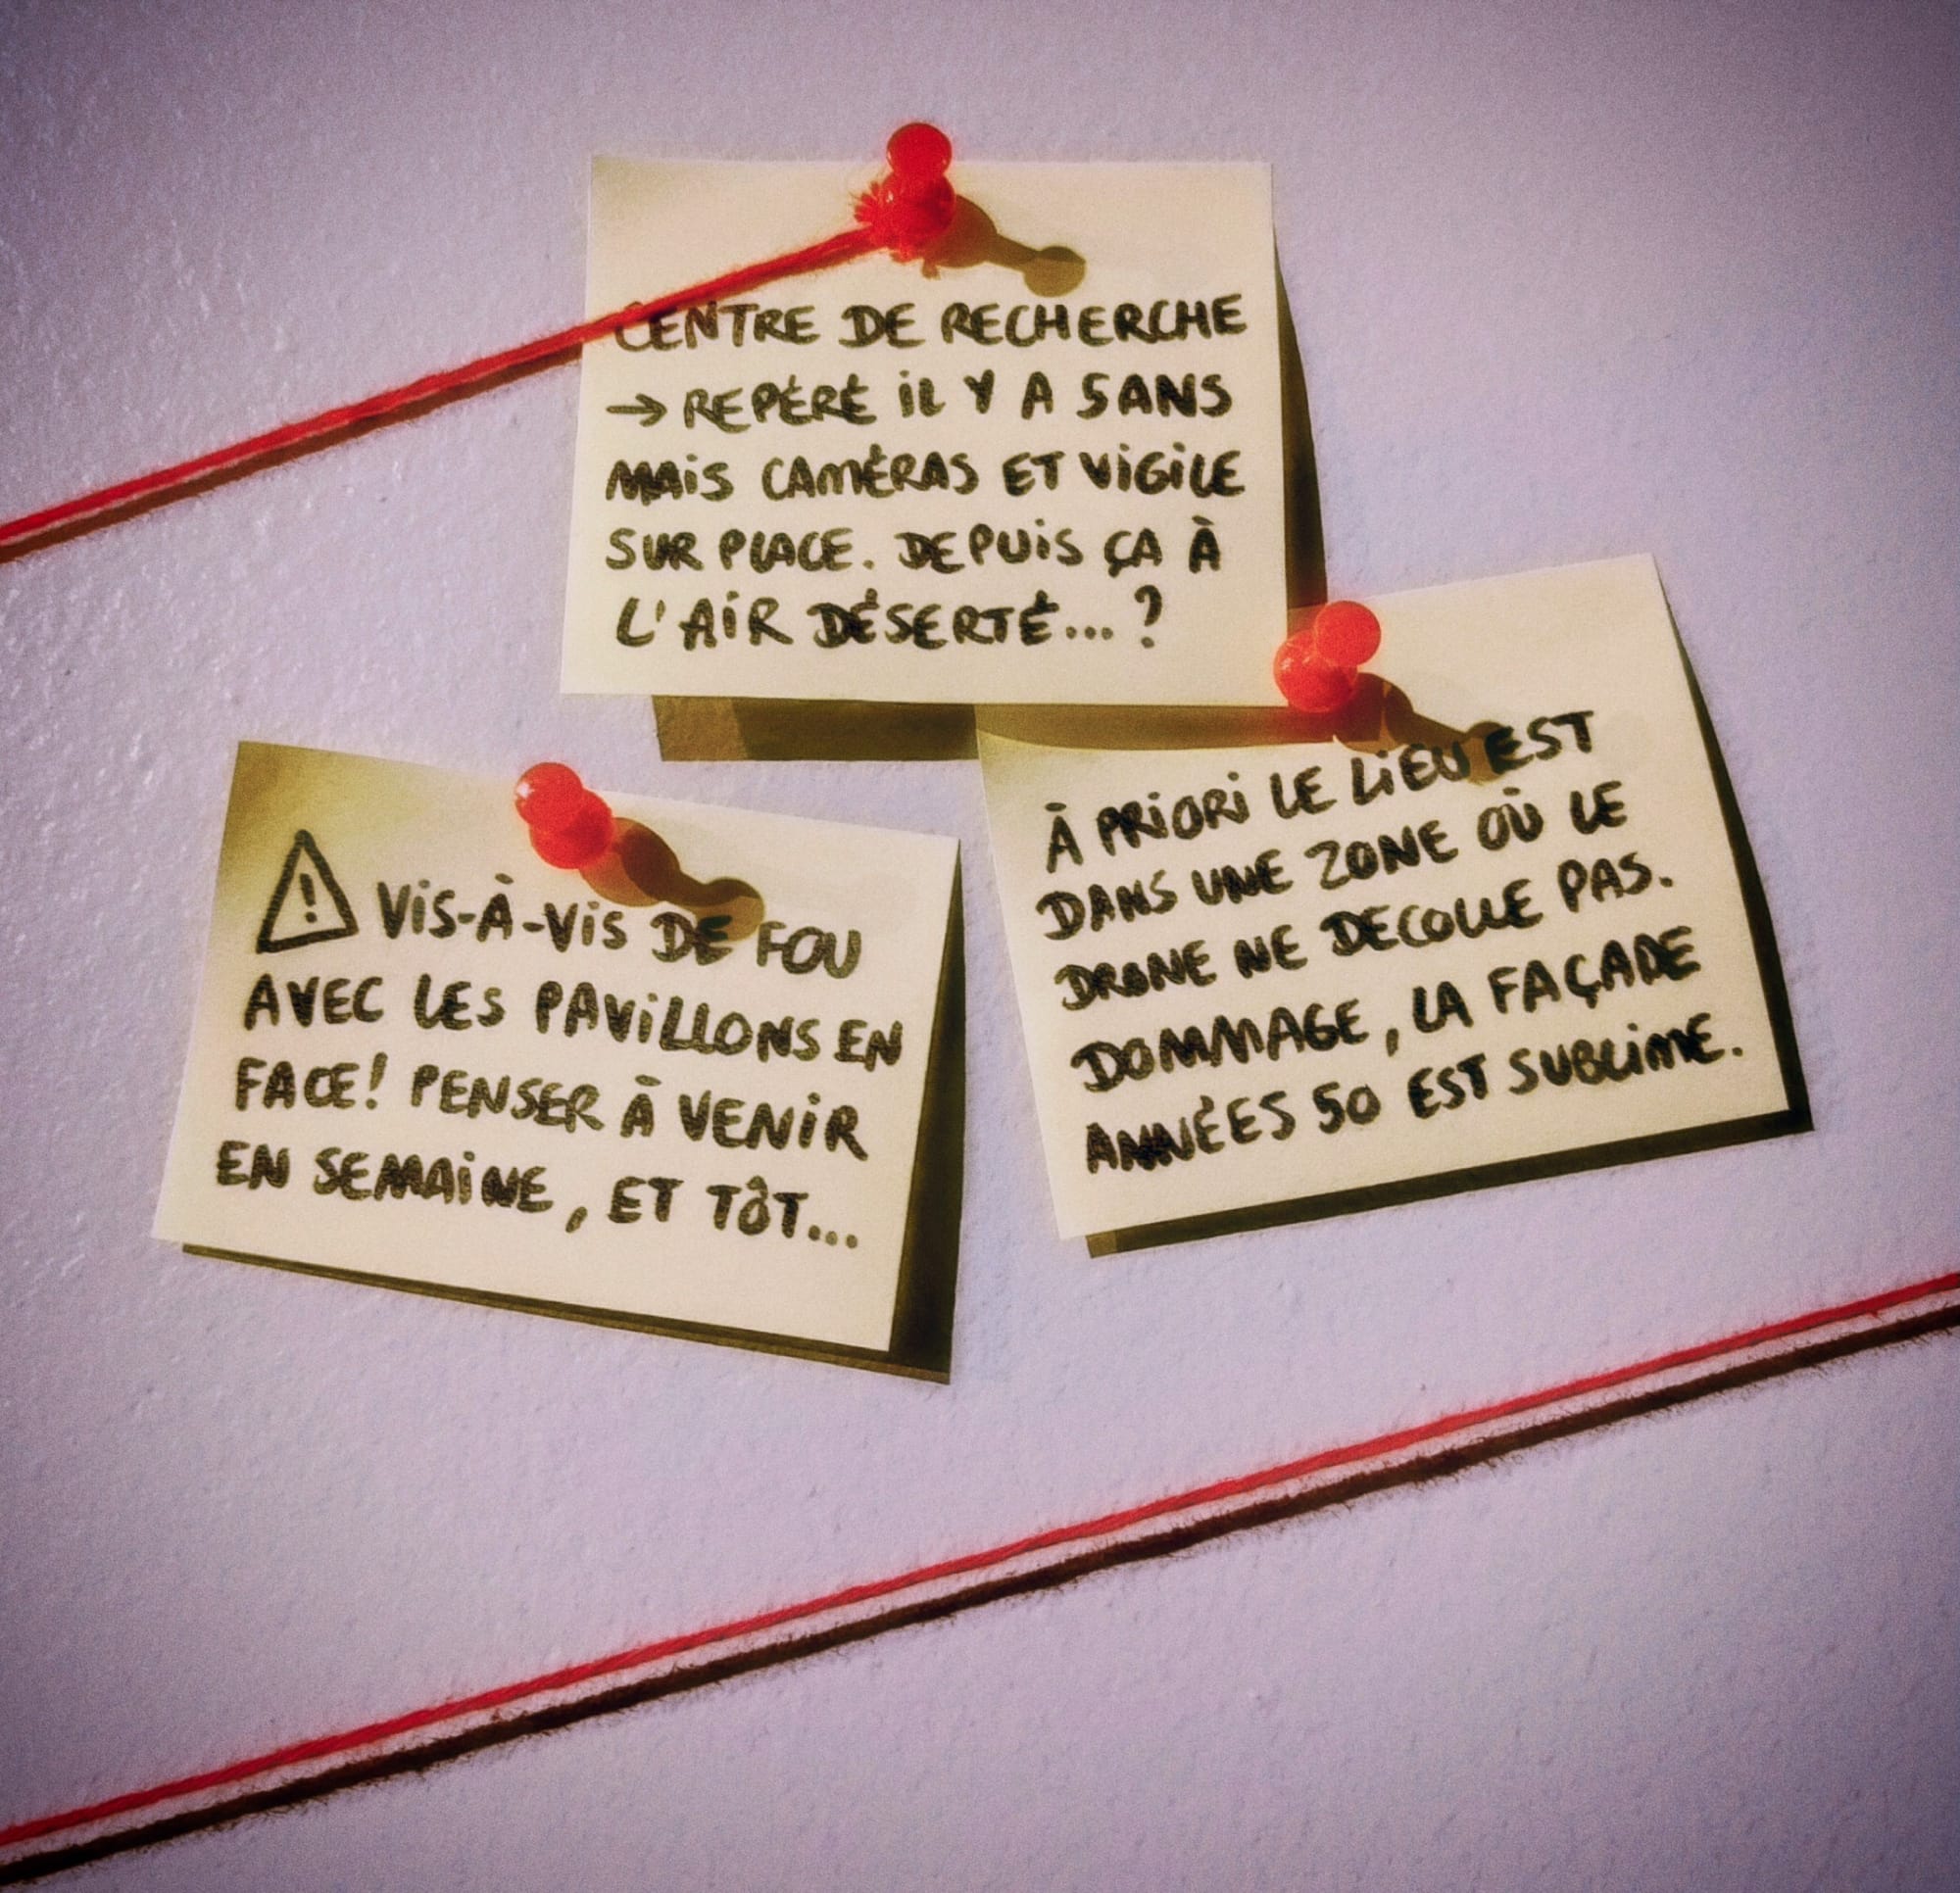 CENTRE DE RECHERCHE
→ REPÉRÉ IL Y A 5 ANS
MAIS CAMÉRAS ET VIGILE
SUR PLACE. DEPUIS ÇA À
L'AIR DÉSERTÉ...?
⚠ VIS-À-VIS DE FOU
AVEC LES PAVILLONS EN
FACE! PENSER À VENIR
EN SEMAINE, ET TÔT...
À PRIORI LE LIEU EST
DANS UNE ZONE OÙ LE
DRONE NE DECOLLE PAS.
DOMMAGE, LA FAÇADE
ANNÉES 50 EST SUBLIME.